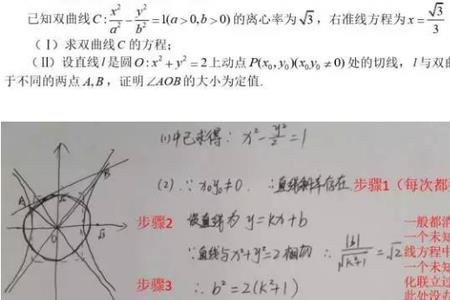 已知双曲线 C: x²/a² - y²/b² = 1(a>0,b>0) 的离心率为√3, 右准线方程为 x = √3/3
(Ⅰ) 求双曲线 C 的方程;
(Ⅱ) 设直线 l 是圆 O: x² + y² = 2 上动点 P(x₀,y₀)(x₀y₀ ≠ 0) 处的切线, l 与双曲
于不同的两点 A,B, 证明∠AOB 的大小为定值.
(1)中已求得: x² - y²/2 = 1
(2) ∵ x₀y₀≠0. ∴直线斜率存在 步骤1 (每次都
步骤2 设直线为 y=kx+b
∵直线与x²+y²=2相切 ∴ |b|/√(k²+1) = √2
步骤3 ∴ b²=2(k²+1)
一般都消
一个未知
线方程中
一个未知
化联立过
A
B
O
√3